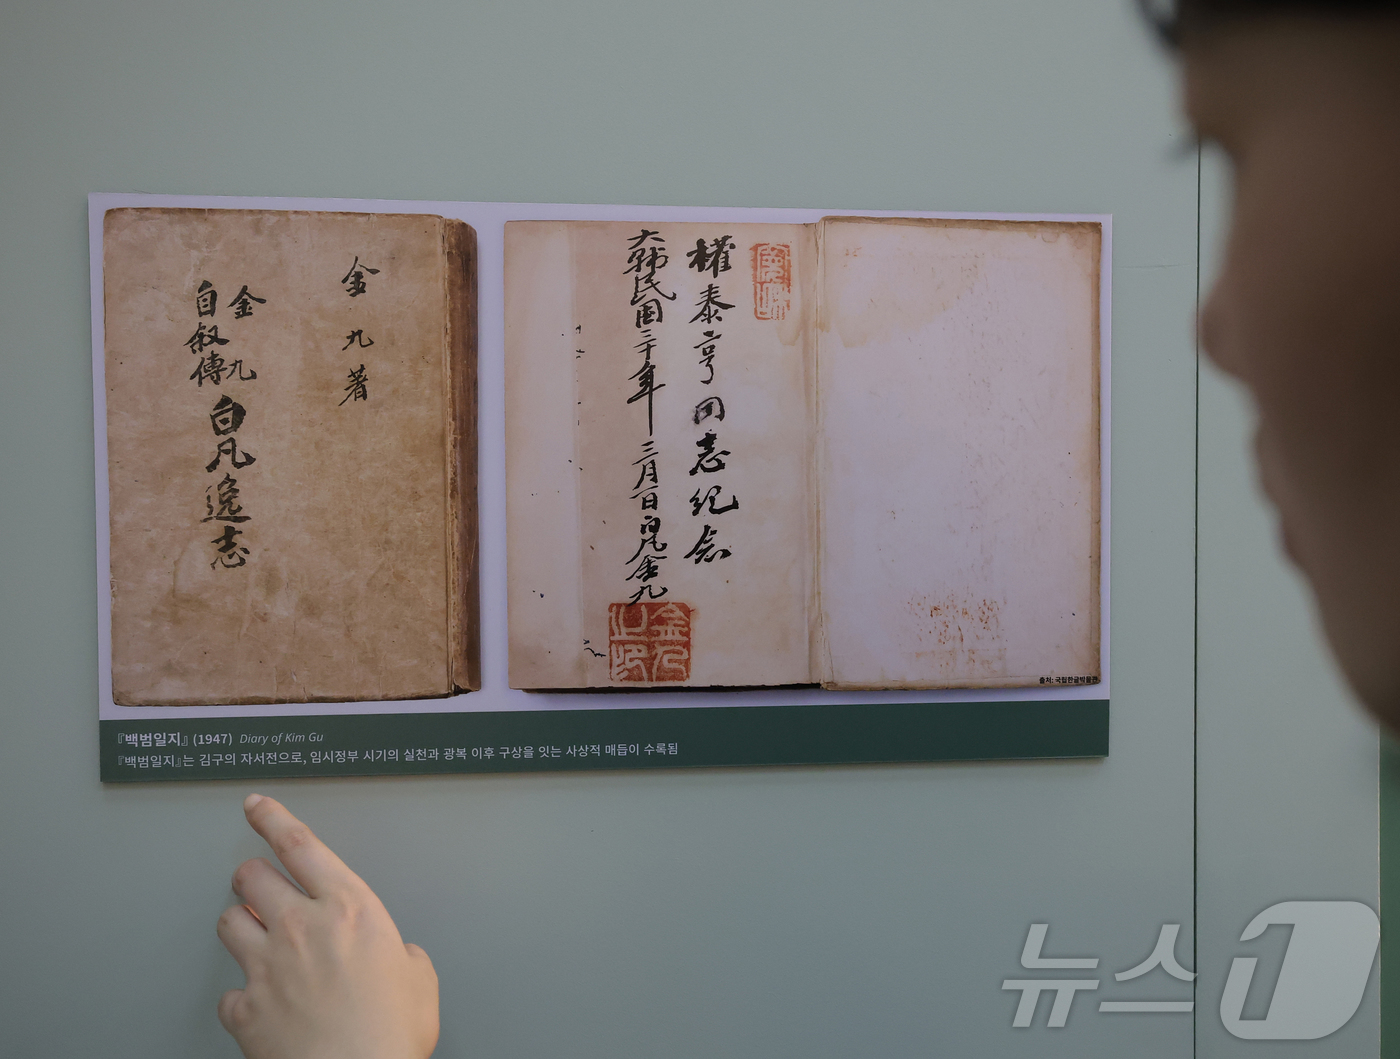 金九著
金九
自叙傳
白凡逸志
權泰亨同志紀念
大韓民國三十年 三月一日 白凡金九
金九之印
출처: 국립한글박물관
『백범일지』 (1947) Diary of Kim Gu
『백범일지』는 김구의 자서전으로, 임시정부 시기의 실천과 광복 이후 구상을 잇는 사상적 매듭이 수록됨
뉴스1